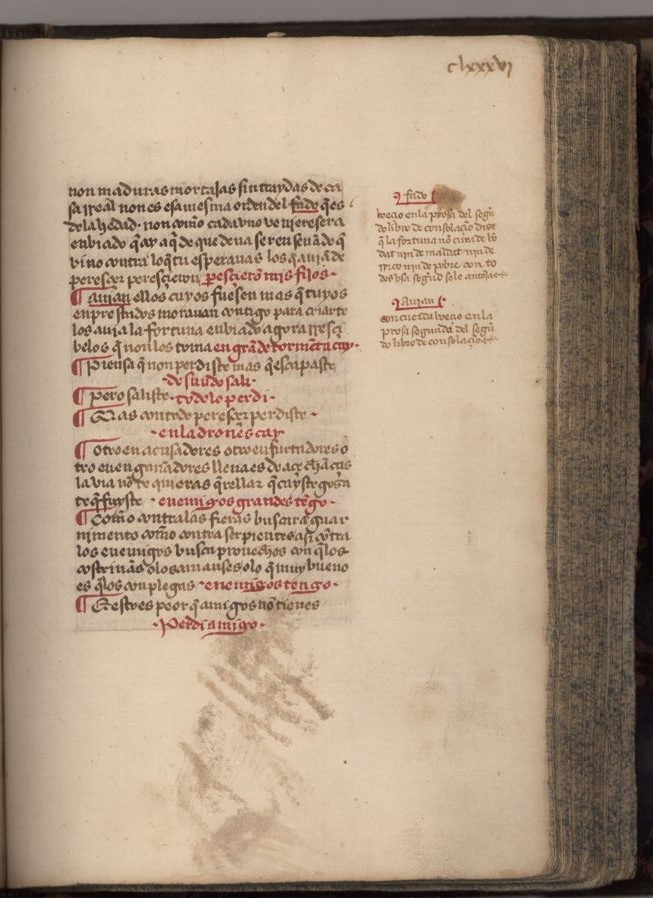 clxxxvj
non maduras mortajas sin
sa rreal non es esa mesma orden del fado q̃ es
de la hedad. non com̃o cada vno veniere sera
enbiado
vino contra lo q̃ tu esperauas los q̃ auiã de
peresçer peresçieron peresçierõ mis fijos.
¶ auian ellos cuyos fuesen mas q̃ tuyos
enprestados morauan contigo para criar te
los auia la fortuna enbiado agora rresçi
belos q̃ non los toma en grãde tormẽta cay.
¶ Piensa q̃ non perdiste mas q̃ escapaste
desnudo sali.
¶ Pero saliste. todo lo perdi.
¶ Mas con todo peresçer perdiste.
en ladrones cay
¶ otro en acusadores otro en furtadores o
tro en engañadores llena es de açechãças
la via nõ te quieras q̃rellar q̃ cayste goza
te q̃ fuyste. enemigos grandes tẽgo.
¶ Com̃o contra las fieras buscira guar
nimento com̃o contra serpientes asi cõtra
los enemigos busca prouechos con q̃ los
costrinas o los amanses solo q̃ muy bueno
es q̃ los con plegas. enemigos tengo.
¶ Mas esto es peor q̃ amigos nõ tienes
Perdi amigo.
fado
boeçio en la prosa del segũ
do libro de consolaçio dize
q̃ la fortuna nõ
dat nin de maldat nin de
rrico nin de pobre con to
dos vsa segund se le antoja
Auian
concuerda boeçio en la
prosa segunda del segũ
do libro de consolaçion